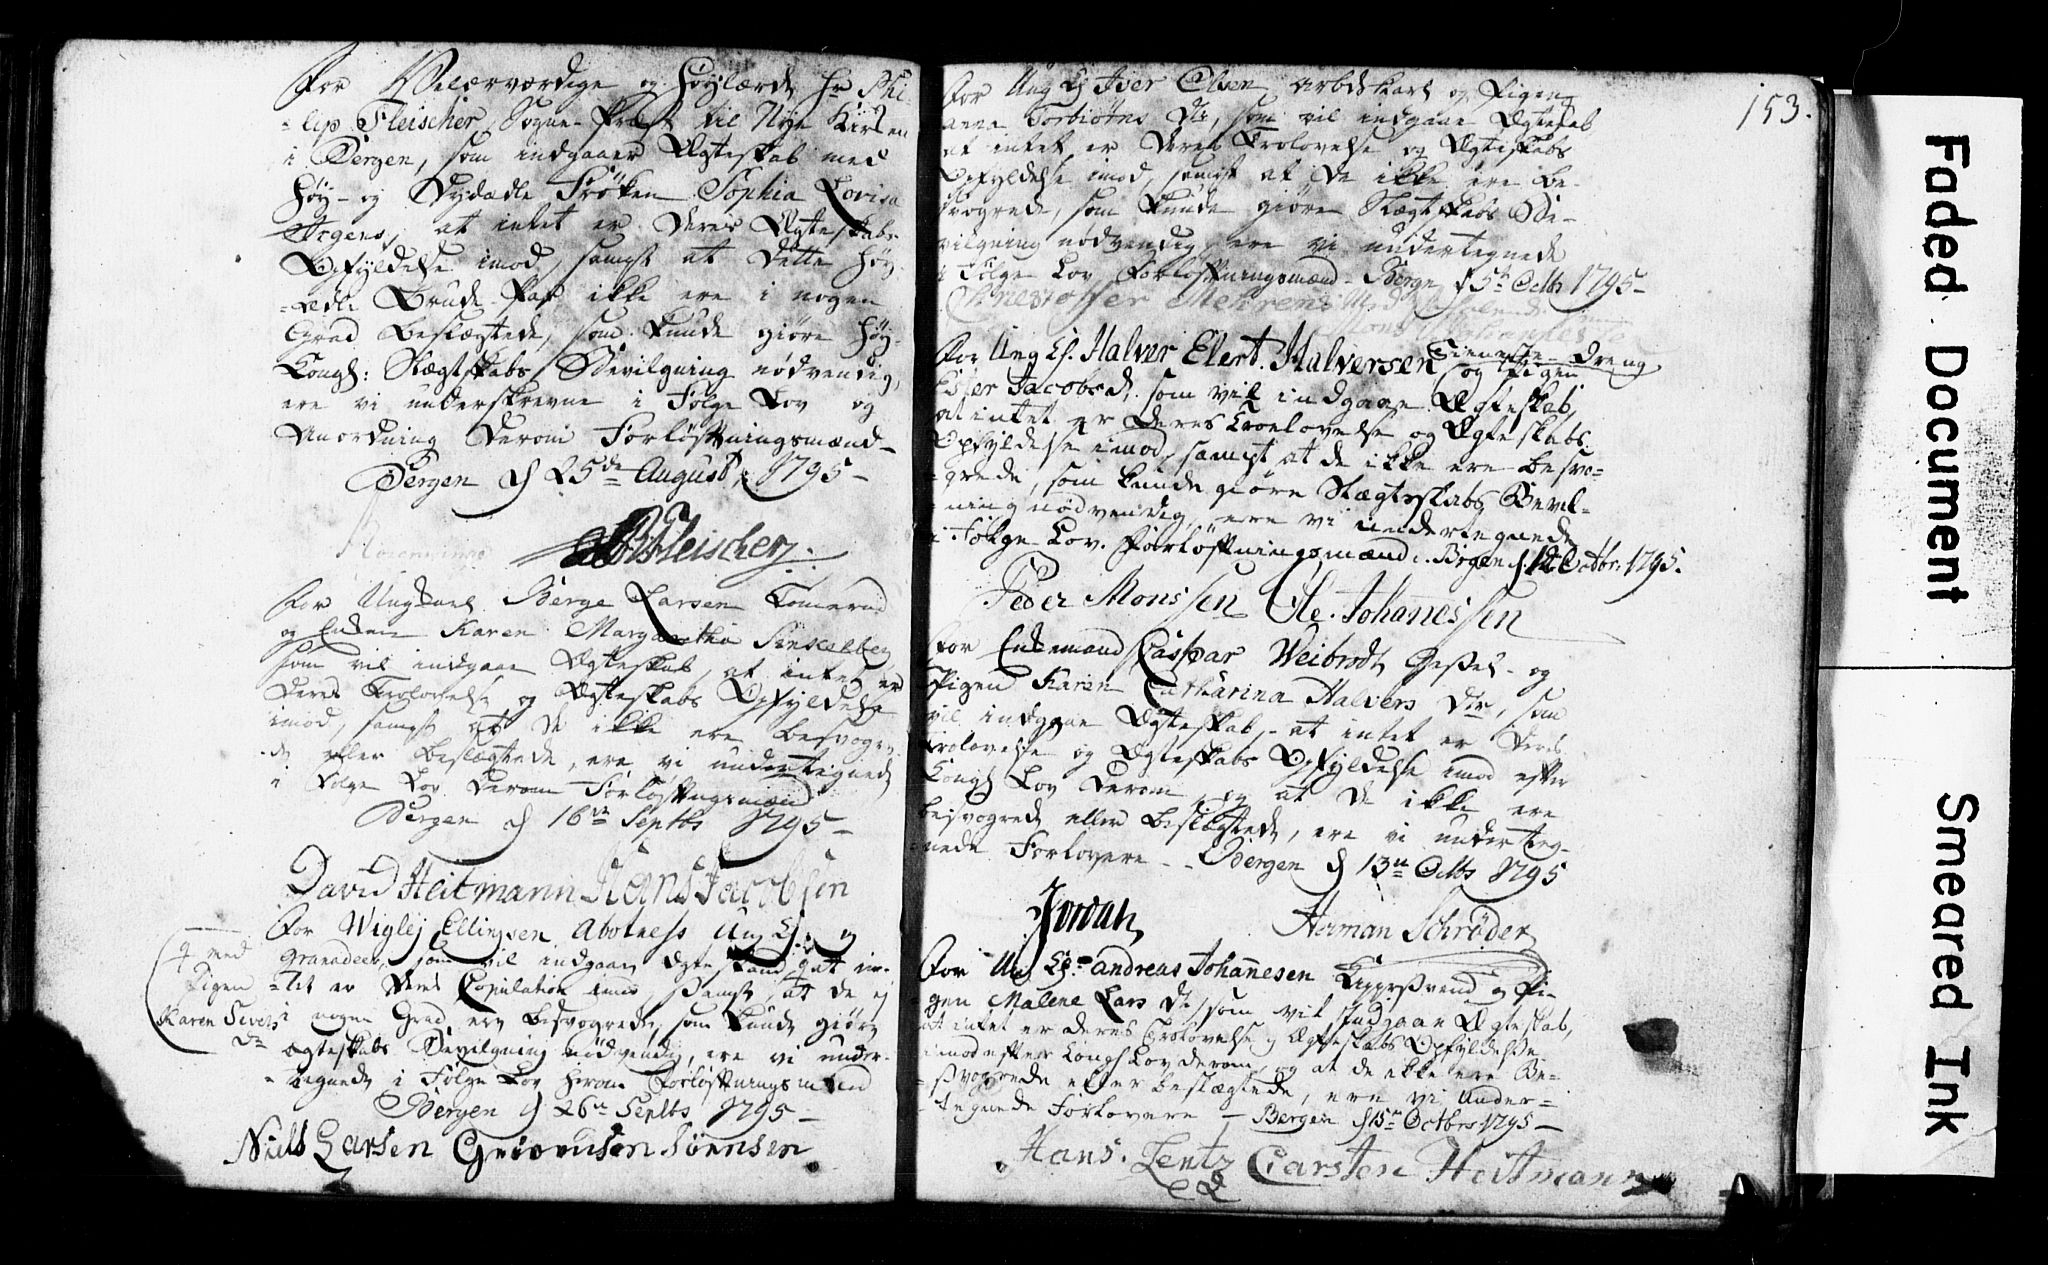 For Velærværdige og Høylærde Hr Phi
-lip Fleischer, Sogne-Præst til Nye Kirken
i Bergen, som indgaaer Ægteskab med
Høy- og Dydædle Frøken Sophia Lovisa
Irgens, at intet er Deres Ægteskabs
Opfyldelse imod, samt at dette Høy-
-ædle Brude-Par ikke ere i nogen
Grad Beslægtede, som kunde giøre Høy-
Kongl: Slægtskabs Bevilgning nødvendig,
ere vi underskrevne i Følge Lov og
Anordning derom Forløftningsmænd
Bergen d 25de August 1795-
Fleischer.
For Ungkarl Børge Larsen
og Enken Karen Margaretha
som vil indgaae Ægteskab, at intet er
Deres Trolovelse og Ægteskabs Opfyldelse
imod, samt at de ikke ere Besvogre-
de eller Beslægtede, ere vi undertegnede
i Følge Lov derom Forløftningsmænd
Bergen d 16de Septbr 1795-
David Heitmann Hans Jacobsen
For Wigley Ellingsen Abotness Ung K: og
Granadeer, som vil indgaae Ægteskab, at in-
-tet er Deres Copulation imod, samt at de ej
i nogen Grad ere besvogrede, som kunde giøre
Ægteskabs Bevilgning nødvendig, ere vi under-
-tegnede i Følge Lov herom Forløftningsmænd
Bergen d 26de Septbr 1795-
med
Pigen
Karen Sivers
Dr
Niels Larsen Sørensen
153.
For Ung K Iver Olsen Arbds Karl og Pigen
Anna Torbiøens Dr, som vil indgaae Ægteskab
at intet er Deres Trolovelse og Ægteskabs
Opfyldelse imod, samt at de ikke ere Be-
svogrede, som kunde giøre Slægtskabs Be-
vilgning nødvendig, ere vi undertegnede
i Følge Lov Forløftningsmænd Bergen d 5te Octbr 1795-
Christoffer Mehrens
For Ung K. Halver Elert Halversen Dreng
og Pigen
Jacobs d, som vil indgaae Ægteskab,
at intet er Deres Troelovelse og Ægteskabs
Opfyldelse imod, samt at de ikke ere besvo-
-grede, som kunde giøre Slægtsskabs Bevil-
-ning nødvendig, ere vi undertegnede
i Følge Lov Forløftningsmænd. Bergen d. 12 Octbr. 1795.
Peder Monssen Ole Johannessen
For Enkemand Caspar Weibrodt Geßel- og
Pigen Karen Catharina Halvers Dtr, som
vil indgaae Ægteskab, at intet er Deres
Trolovelse og Ægteskabs Opfyldelse imod efter
Kongl Lov derom, og at de ikke ere
besvogrede eller beslægtede, ere vi underteg-
-nede Forlovere - Bergen d 13de Octbr 1795
Jordan Herman Schrøder
For Un K: Andreas Johannesen og Pi-
gen Malene Lars Dr, som vil Indgaae Ægteskab,
at intet er deres Trolovelse og Ægteskabs Opfyldelse
imod efter Kongl Lov derom, og at de ikke ere Be-
-svogrede eller beslægtede, ere vi Under-
-tegnede Forlovere - Bergen d 15de Octbr 1795-
Hans Lentz Carsten Heitmann
Faded Document
Smeared Ink